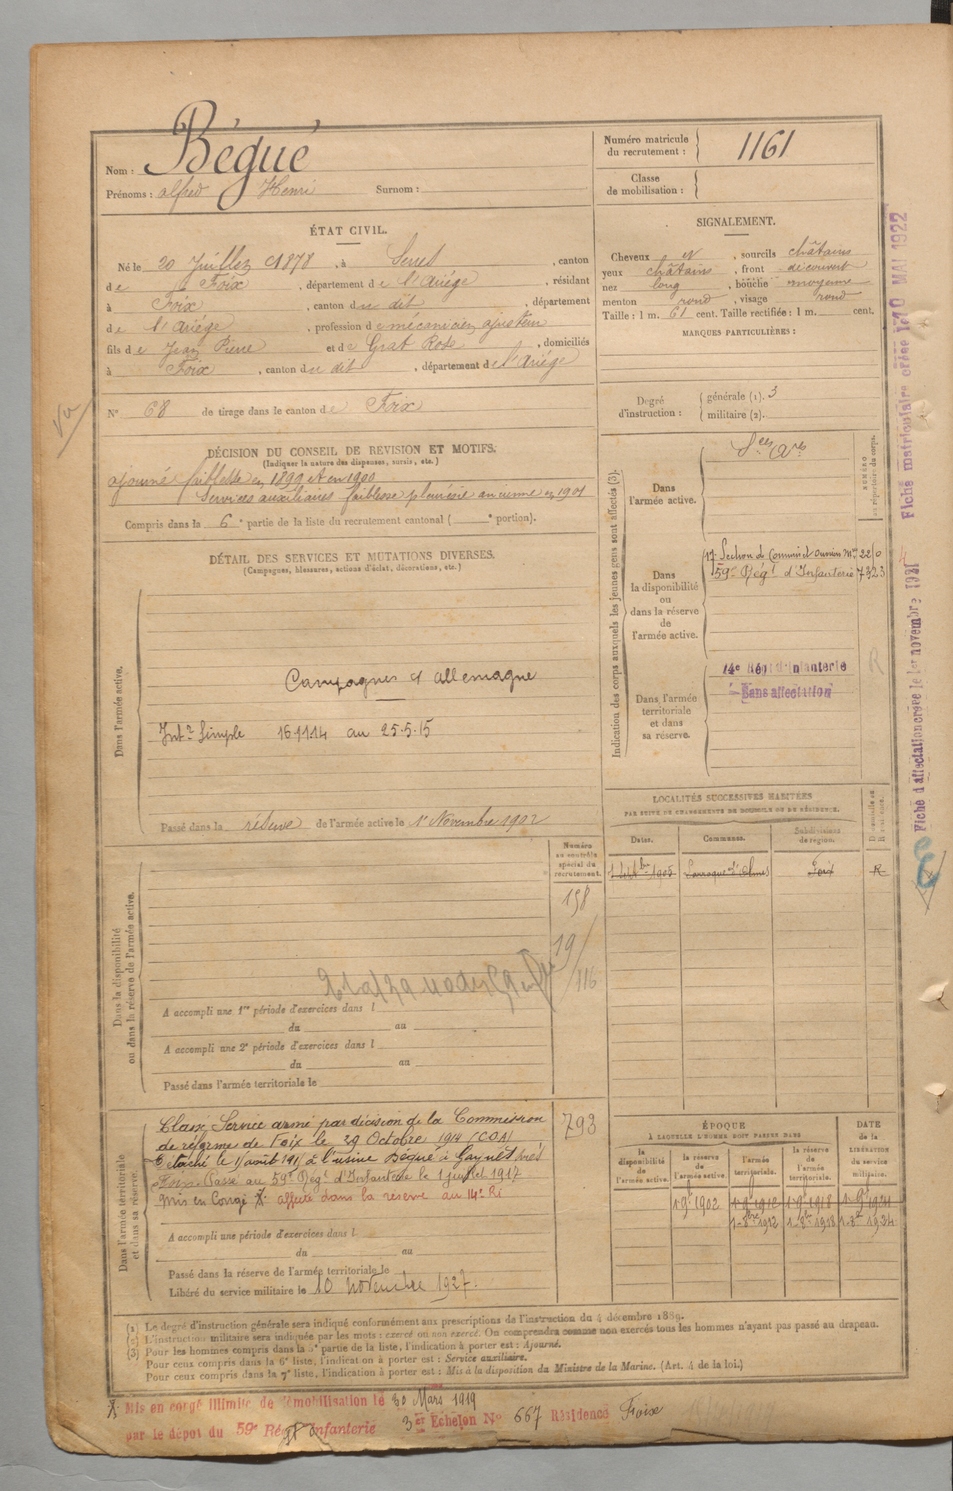 Nom : Bégué
Prénoms : alfred Henri Surnom :
Numéro matricule du recrutement : 1161
Classe de mobilisation :
ÉTAT CIVIL.
Né le 20 Juillet 1878, à Serres, canton
de Foix, département de l'Ariége, résidant
à Foix, canton du dit, département
de l'Ariége, profession de mécanicien ajusteur
fils de Jean Pierre et de Grat Rose, domiciliés
à Foix, canton du dit, département de l'Ariége
N° 68 de tirage dans le canton de Foix
SIGNALEMENT.
Cheveux et, sourcils châtains
yeux châtains, front découvert
nez long, bouche moyenne
menton rond, visage rond
Taille : 1 m. 61 cent. Taille rectifiée : 1 m. cent.
MARQUES PARTICULIÈRES :
Degré d'instruction : générale (1). 3
militaire (2).
DÉCISION DU CONSEIL DE RÉVISION ET MOTIFS.
(Indiquer la nature des dispenses, sursis, etc.)
ajourné faiblesse en 1899 et en 1900
Services auxiliaires faiblesse pleurésie ancienne en 1901
Compris dans la 6e partie de la liste du recrutement cantonal ( e portion).
DÉTAIL DES SERVICES ET MUTATIONS DIVERSES.
(Campagnes, blessures, actions d'éclat, décorations, etc.)
Dans l'armée active.
Campagnes ct allemagne
Intr Simple 16 11 14 au 25.5.15
Passé dans la réserve de l'armée active le 1er Novembre 1902
Indication des corps auxquels les jeunes gens sont affectés (3).
NUMÉRO au répertoire du corps.
Dans l'armée active.
Sces Ares
Dans la disponibilité ou dans la réserve de l'armée active.
17e Section de Commis et ouvriers Mres 2210
59e Régt d'Infanterie 7323
Dans l'armée territoriale et dans sa réserve.
14e Régt d'Infanterie
Sans affectation
LOCALITÉS SUCCESSIVES HABITÉES
PAR SUITE DE CHANGEMENTS DE DOMICILE OU DE RÉSIDENCE.
Dates. Communes. Subdivisions de région. Domicile ou Résidence.
1 Septbre 1905 Laroque d'Olmes Foix R
Dans la disponibilité ou dans la réserve de l'armée active.
Numéro au contrôle spécial du recrutement.
158
19/116
A accompli une 1re période d'exercices dans l
du au
A accompli une 2e période d'exercices dans l
du au
Passé dans l'armée territoriale le
Dans l'armée territoriale et dans sa réserve.
793
Classé Service armé par décision de la Commission
de réforme de Foix le 29 Octobre 1914 (COA)
Détaché le 1 avril 1917 à l'usine Bégué à Gaynès près
Foix. Passé au 59e Régt d'Infanterie le 1 Juillet 1917
Mis en Congé X affecté dans la réserve au 14e RI
A accompli une période d'exercices dans l
du au
Passé dans la réserve de l'armée territoriale le
Libéré du service militaire le 10 Novembre 1927.
ÉPOQUE
À LAQUELLE L'HOMME DOIT PASSER DANS
la disponibilité de l'armée active. la réserve de l'armée active. l'armée territoriale. la réserve de l'armée territoriale.
DATE de la LIBÉRATION du service militaire.
1-9bre 1902 1-9bre 1912 1-9bre 1918 1-9bre 1924
1-8bre 1912 1-8bre 1918 1-8bre 1924
(1) Le degré d'instruction générale sera indiqué conformément aux prescriptions de l'instruction du 4 décembre 1889.
(2) L'instruction militaire sera indiquée par les mots : exercé ou non exercé. On comprendra comme non exercés tous les hommes n'ayant pas passé au drapeau.
(3) Pour les hommes compris dans la 5e partie de la liste, l'indication à porter est : Ajourné.
Pour ceux compris dans la 6e liste, l'indication à porter est : Service auxiliaire.
Pour ceux compris dans la 7e liste, l'indication à porter est : Mis à la disposition du Ministre de la Marine. (Art. 4 de la loi.)
X Mis en congé illimité de démobilisation le 30 Mars 1919
3er Echelon No 667 Résidence Foix
par le dépôt du 59e Régt Infanterie
Fiche matriculaire créée le 10 MAI 1922
Fiche d'affectation créée le 1er novembre 1921